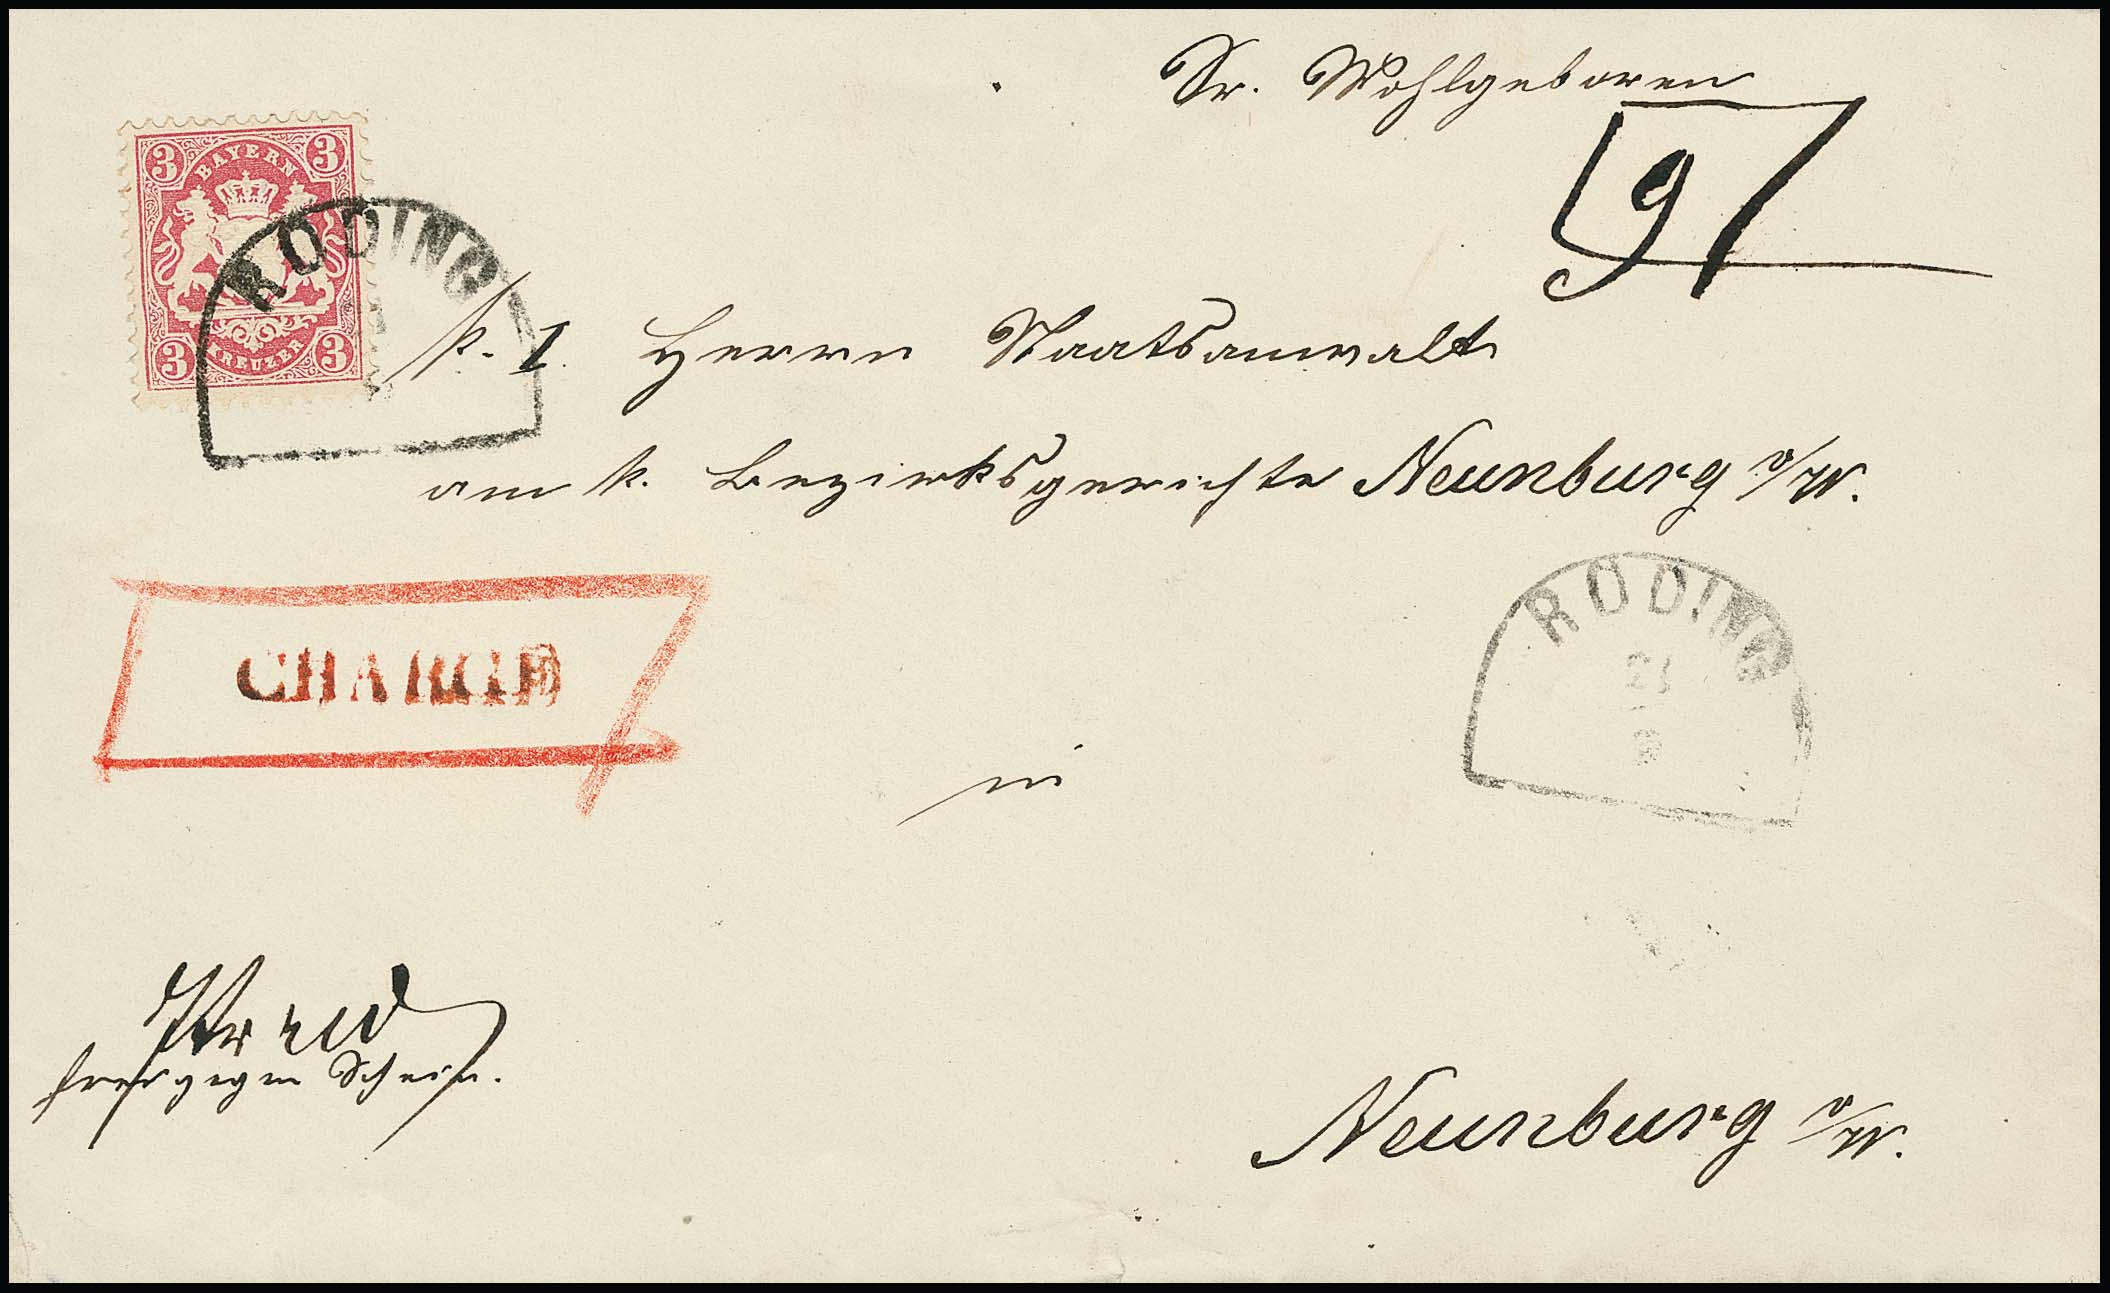 Sr. Wohlgeboren
9
3 BAYERN 3
3 KREUZER 3
RODING
k. I. Herrn Staatsanwalt
am k. Bezirksgerichte Neunburg v/W.
CHARGÉ
RODING
21
in
frei gegen Schein.
Neunburg v/W.